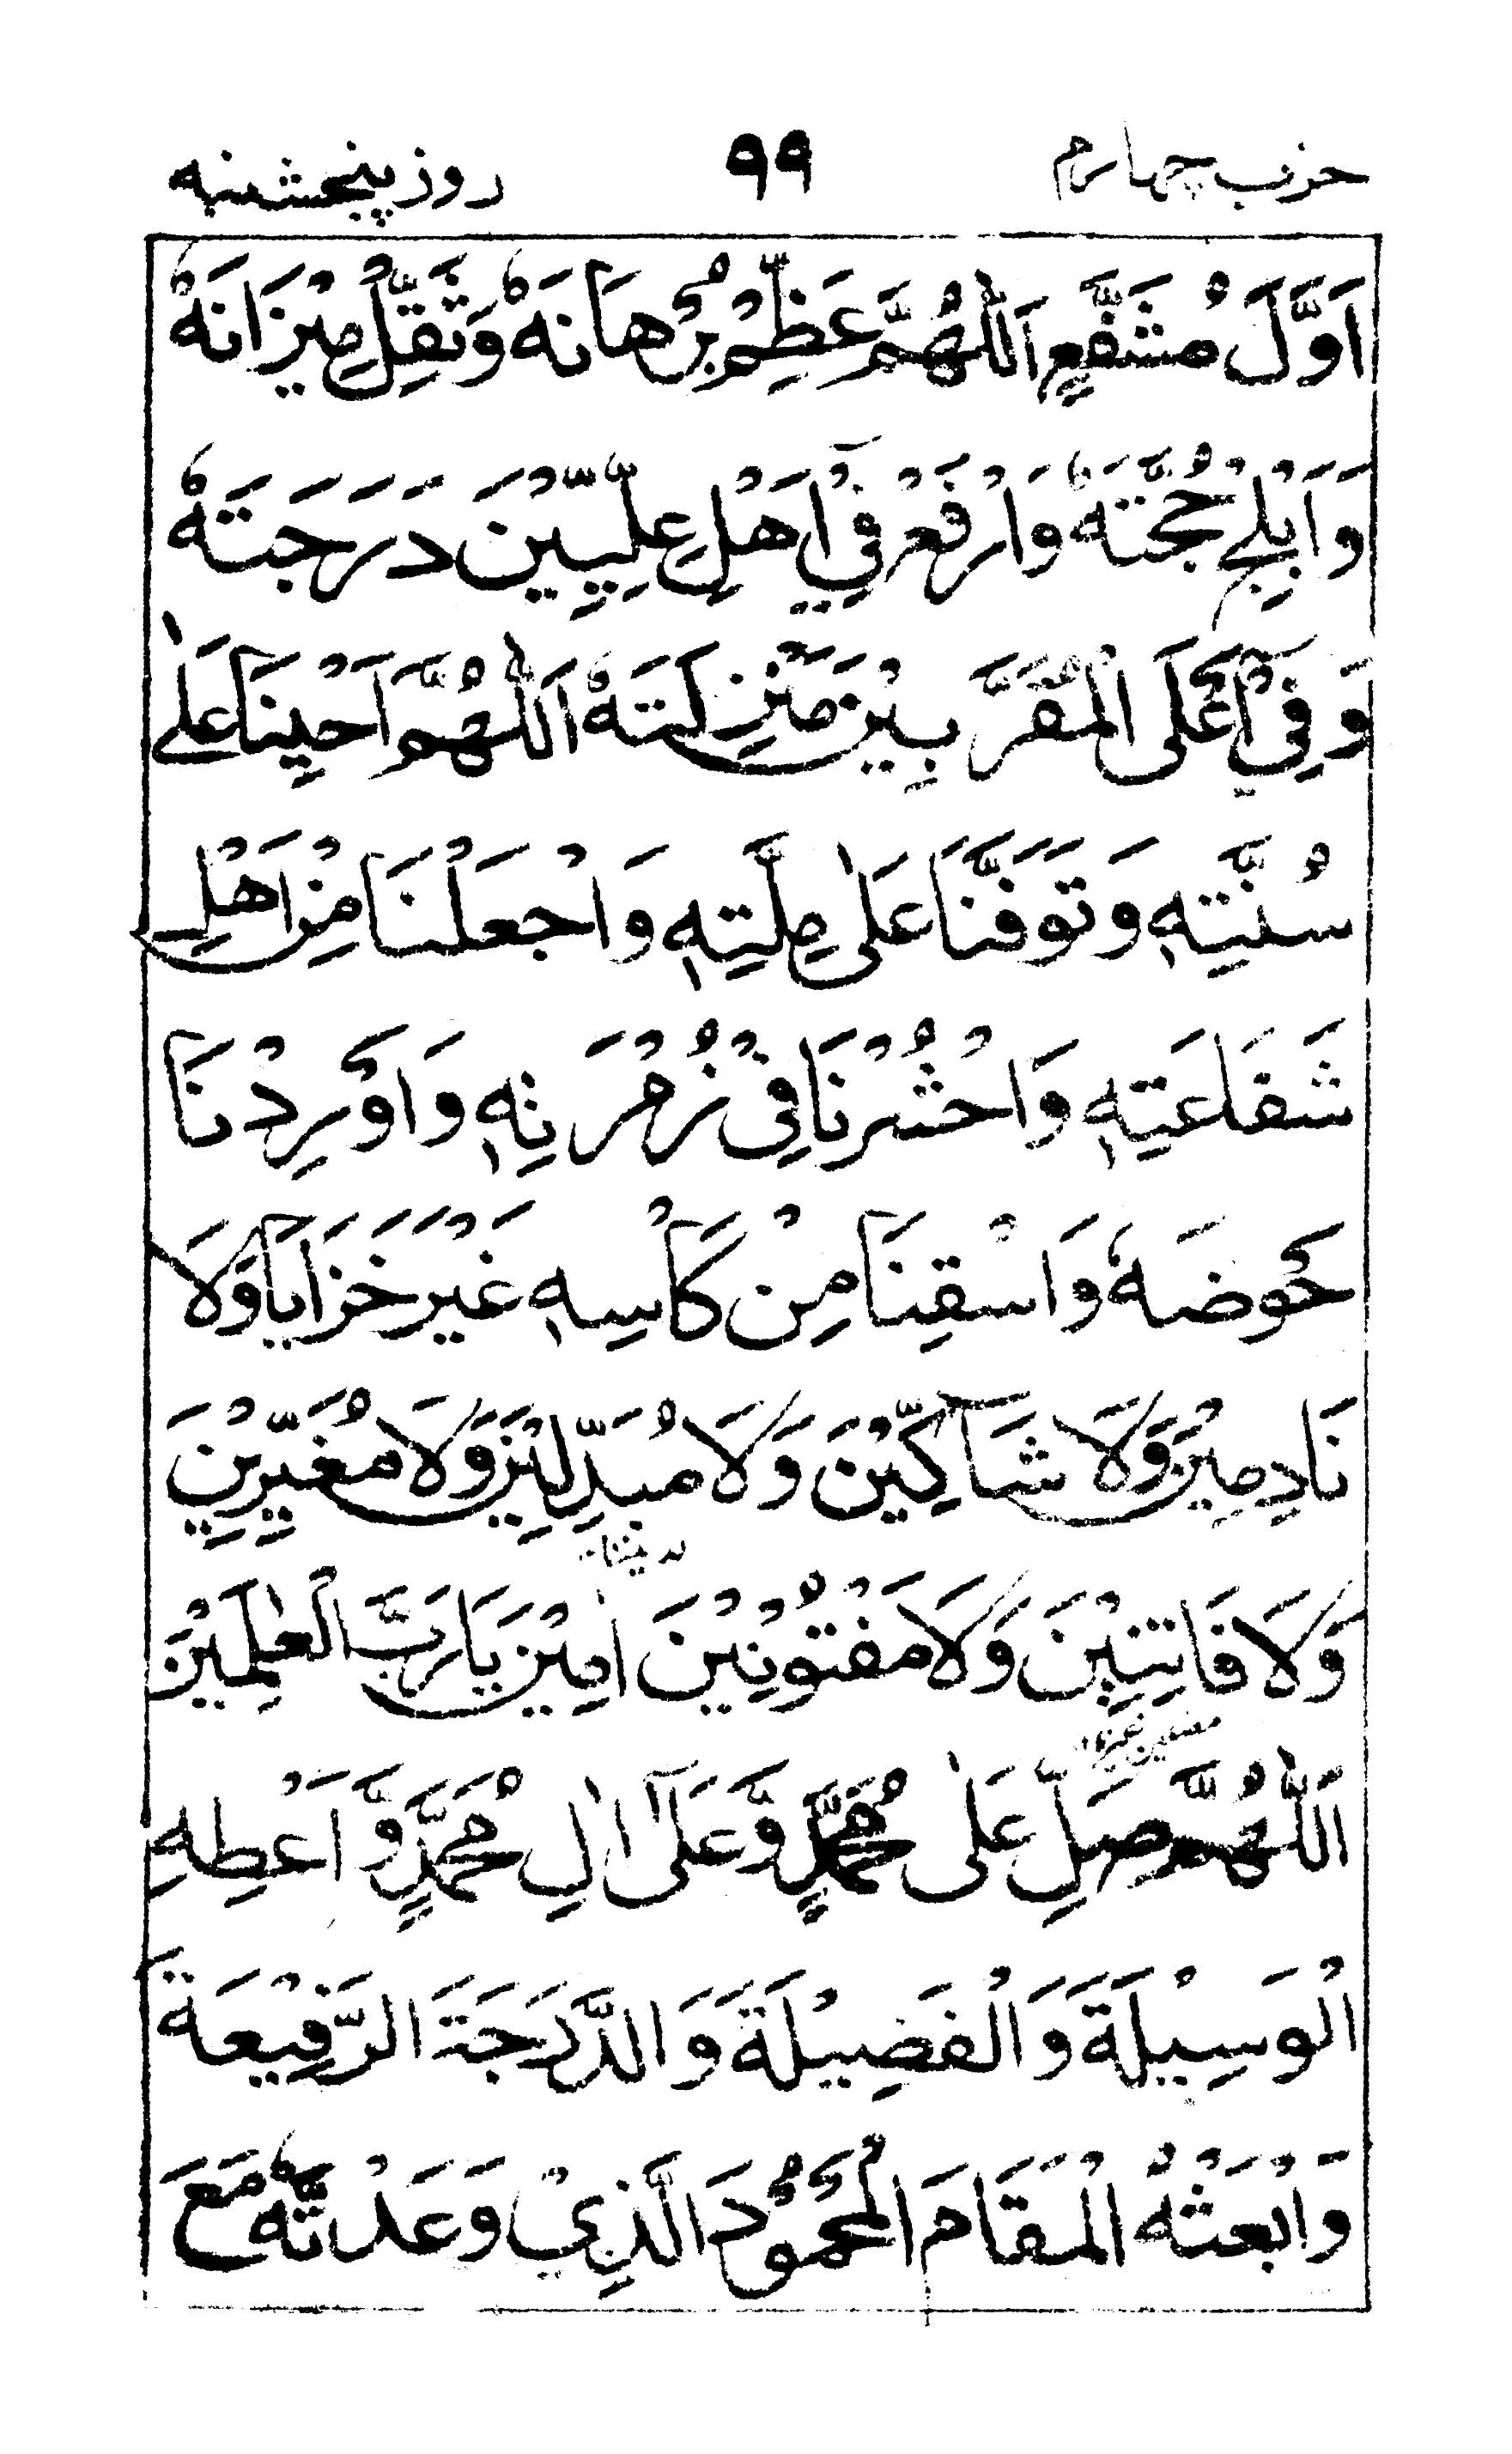 حزب چهارم ۹۹ روز پنجشنبه
اَوَّلَ مُشَفَّعٍ اَللّٰهُمَّ عَظِّمْ بُرْهَانَهٗ وَثَقِّلْ مِيْزَانَهٗ
وَاَبْلِجْ حُجَّتَهٗ وَارْفَعْ فِيْٓ اَهْلِ عِلِّيِّيْنَ دَرَجَتَهٗ
وَفِيْٓ اَعْلَى الْمُقَرَّبِيْنَ مَنْزِلَتَهٗ اَللّٰهُمَّ اَحْيِنَا عَلٰى
سُنَّتِهٖ وَتَوَفَّنَا عَلٰى مِلَّتِهٖ وَاجْعَلْنَا مِنْ اَهْلِ
شَفَاعَتِهٖ وَاحْشُرْنَا فِيْ زُمْرَتِهٖ وَاَوْرِدْنَا
حَوْضَهٗ وَاسْقِنَا مِنْ كَاْسِهٖ غَيْرَ خَزَايَا وَلَا
نَادِمِيْنَ وَلَا شَاكِّيْنَ وَلَا مُبَدِّلِيْنَ وَلَا مُغَيِّرِيْنَ
وَلَا فَاتِنِيْنَ وَلَا مَفْتُوْنِيْنَ اٰمِيْنَ يَا رَبَّ الْعٰلَمِيْنَ
اَللّٰهُمَّ صَلِّ عَلٰى مُحَمَّدٍ وَّعَلٰٓى اٰلِ مُحَمَّدٍ وَّاَعْطِهِ
الْوَسِيْلَةَ وَالْفَضِيْلَةَ وَالدَّرَجَةَ الرَّفِيْعَةَ
وَابْعَثْهُ الْمَقَامَ الْمَحْمُوْدَ الَّذِيْ وَعَدْتَّهٗ مَعَ